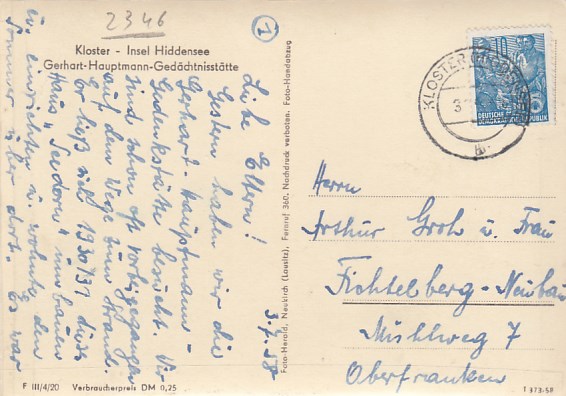 2346
1
Kloster - Insel Hiddensee
Gerhart-Hauptmann-Gedächtnisstätte
3.7.58
Liebe Eltern!
Gestern haben wir die
Gerhart-Hauptmann-
Gedenkstätte besucht. Wir
sind schon oft vorbeigegangen
auf dem Wege zum Strand.
Er ließ sich 1930/31 dieses
Haus "Seedorn" umbauen
u. einrichten u. wohnte den
Sommer über dort. Es war
Foto-Herold, Neukirch (Lausitz), Fernruf 360. Nachdruck verboten. Foto-Handabzug
KLOSTER (HIDDENSEE)
10
DEUTSCHE
DEMOKRATISCHE REPUBLIK
Herrn
Arthur Groh u. Frau
Fichtelberg-Neubau
Mühlweg 7
Oberfranken
F III/4/20 Verbraucherpreis DM 0,25
T 373-58